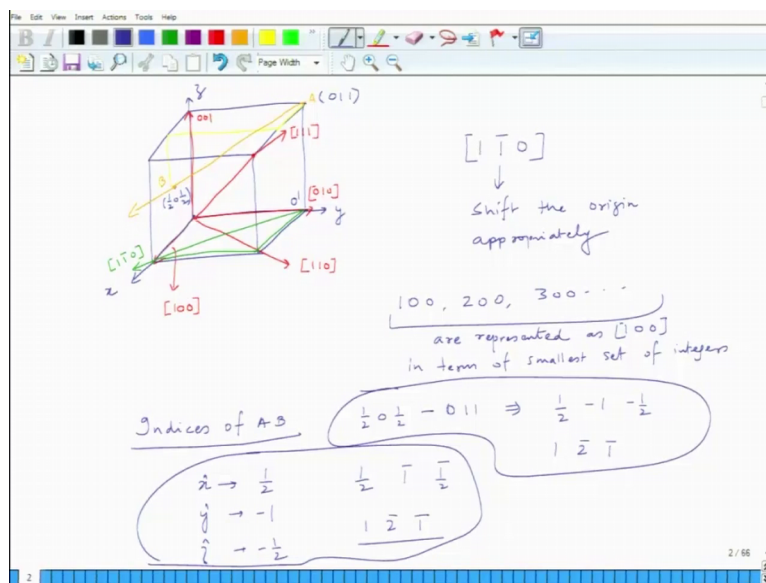 File Edit View Insert Actions Tools Help
B I
Page Width
z
A(011)
001
[111]
B
(½ 0 ½)
0'
[010]
y
[11̅0]
x
[110]
[100]
[1 1̅ 0]
↓
Shift the origin
appropriately
100, 200, 300 ....
are represented as [100]
in term of smallest set of integers
Indices of AB
½ 0 ½ - 011 ⇒ ½ -1 -½
1 2̅ 1̅
x̂ → ½
ŷ → -1
ẑ → -½
½ 1̅ ½̅
1 2̅ 1̅
2 / 66
2